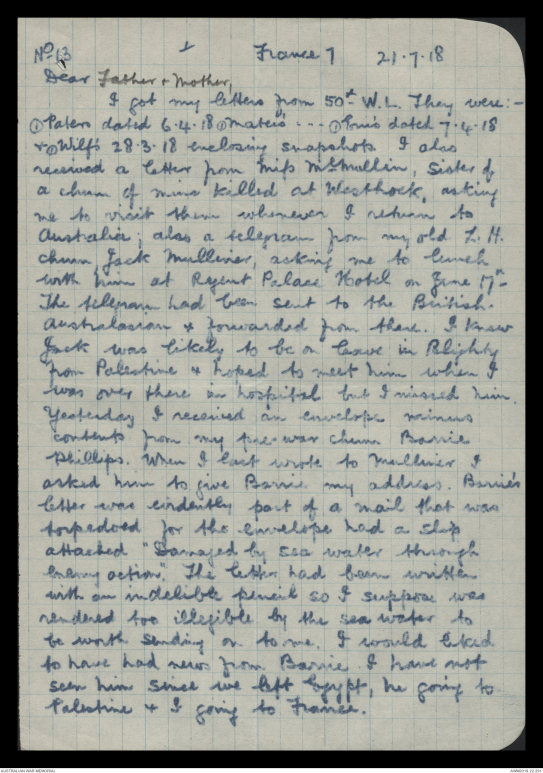 No 13 1 France 7 21.7.18
Dear Father & Mother,
I got my letters from 50th W.L. They were:-
① Paters dated 6.4.18 ① Maters --- ① dated 7.4.18
& ① Wilf's 28.3.18 enclosing snapshots. I also
received a letter from Miss McMullin, sister of
a chum of mine killed at Westhoek, asking
me to visit them whenever I return to
Australia; also a telegram from my old L.H.
chum, Jack Mulliner, asking me to lunch
with him at Regent Palace Hotel on June 17th-
The telegram had been sent to the British-
Australasian & forwarded from there. I knew
Jack was likely to be on leave in Blighty
from Palestine & hoped to meet him when I
was over there in hospital but I missed him.
Yesterday I received an envelope minus
contents from my pre-war chum Barrie
Phillips. When I last wrote to Mulliner I
asked him to give Barrie my address. Barrie's
letter was evidently part of a mail that was
torpedoed for the envelope had a slip
attached "Damaged by sea water through
enemy action." The letter had been written
with an indelible pencil so I suppose was
rendered too illegible by the sea water to
be worth sending on to me. I would liked
to have had news from Barrie. I have not
seen him since we left Egypt, he going to
Palestine & I going to France.
AUSTRALIAN WAR MEMORIAL